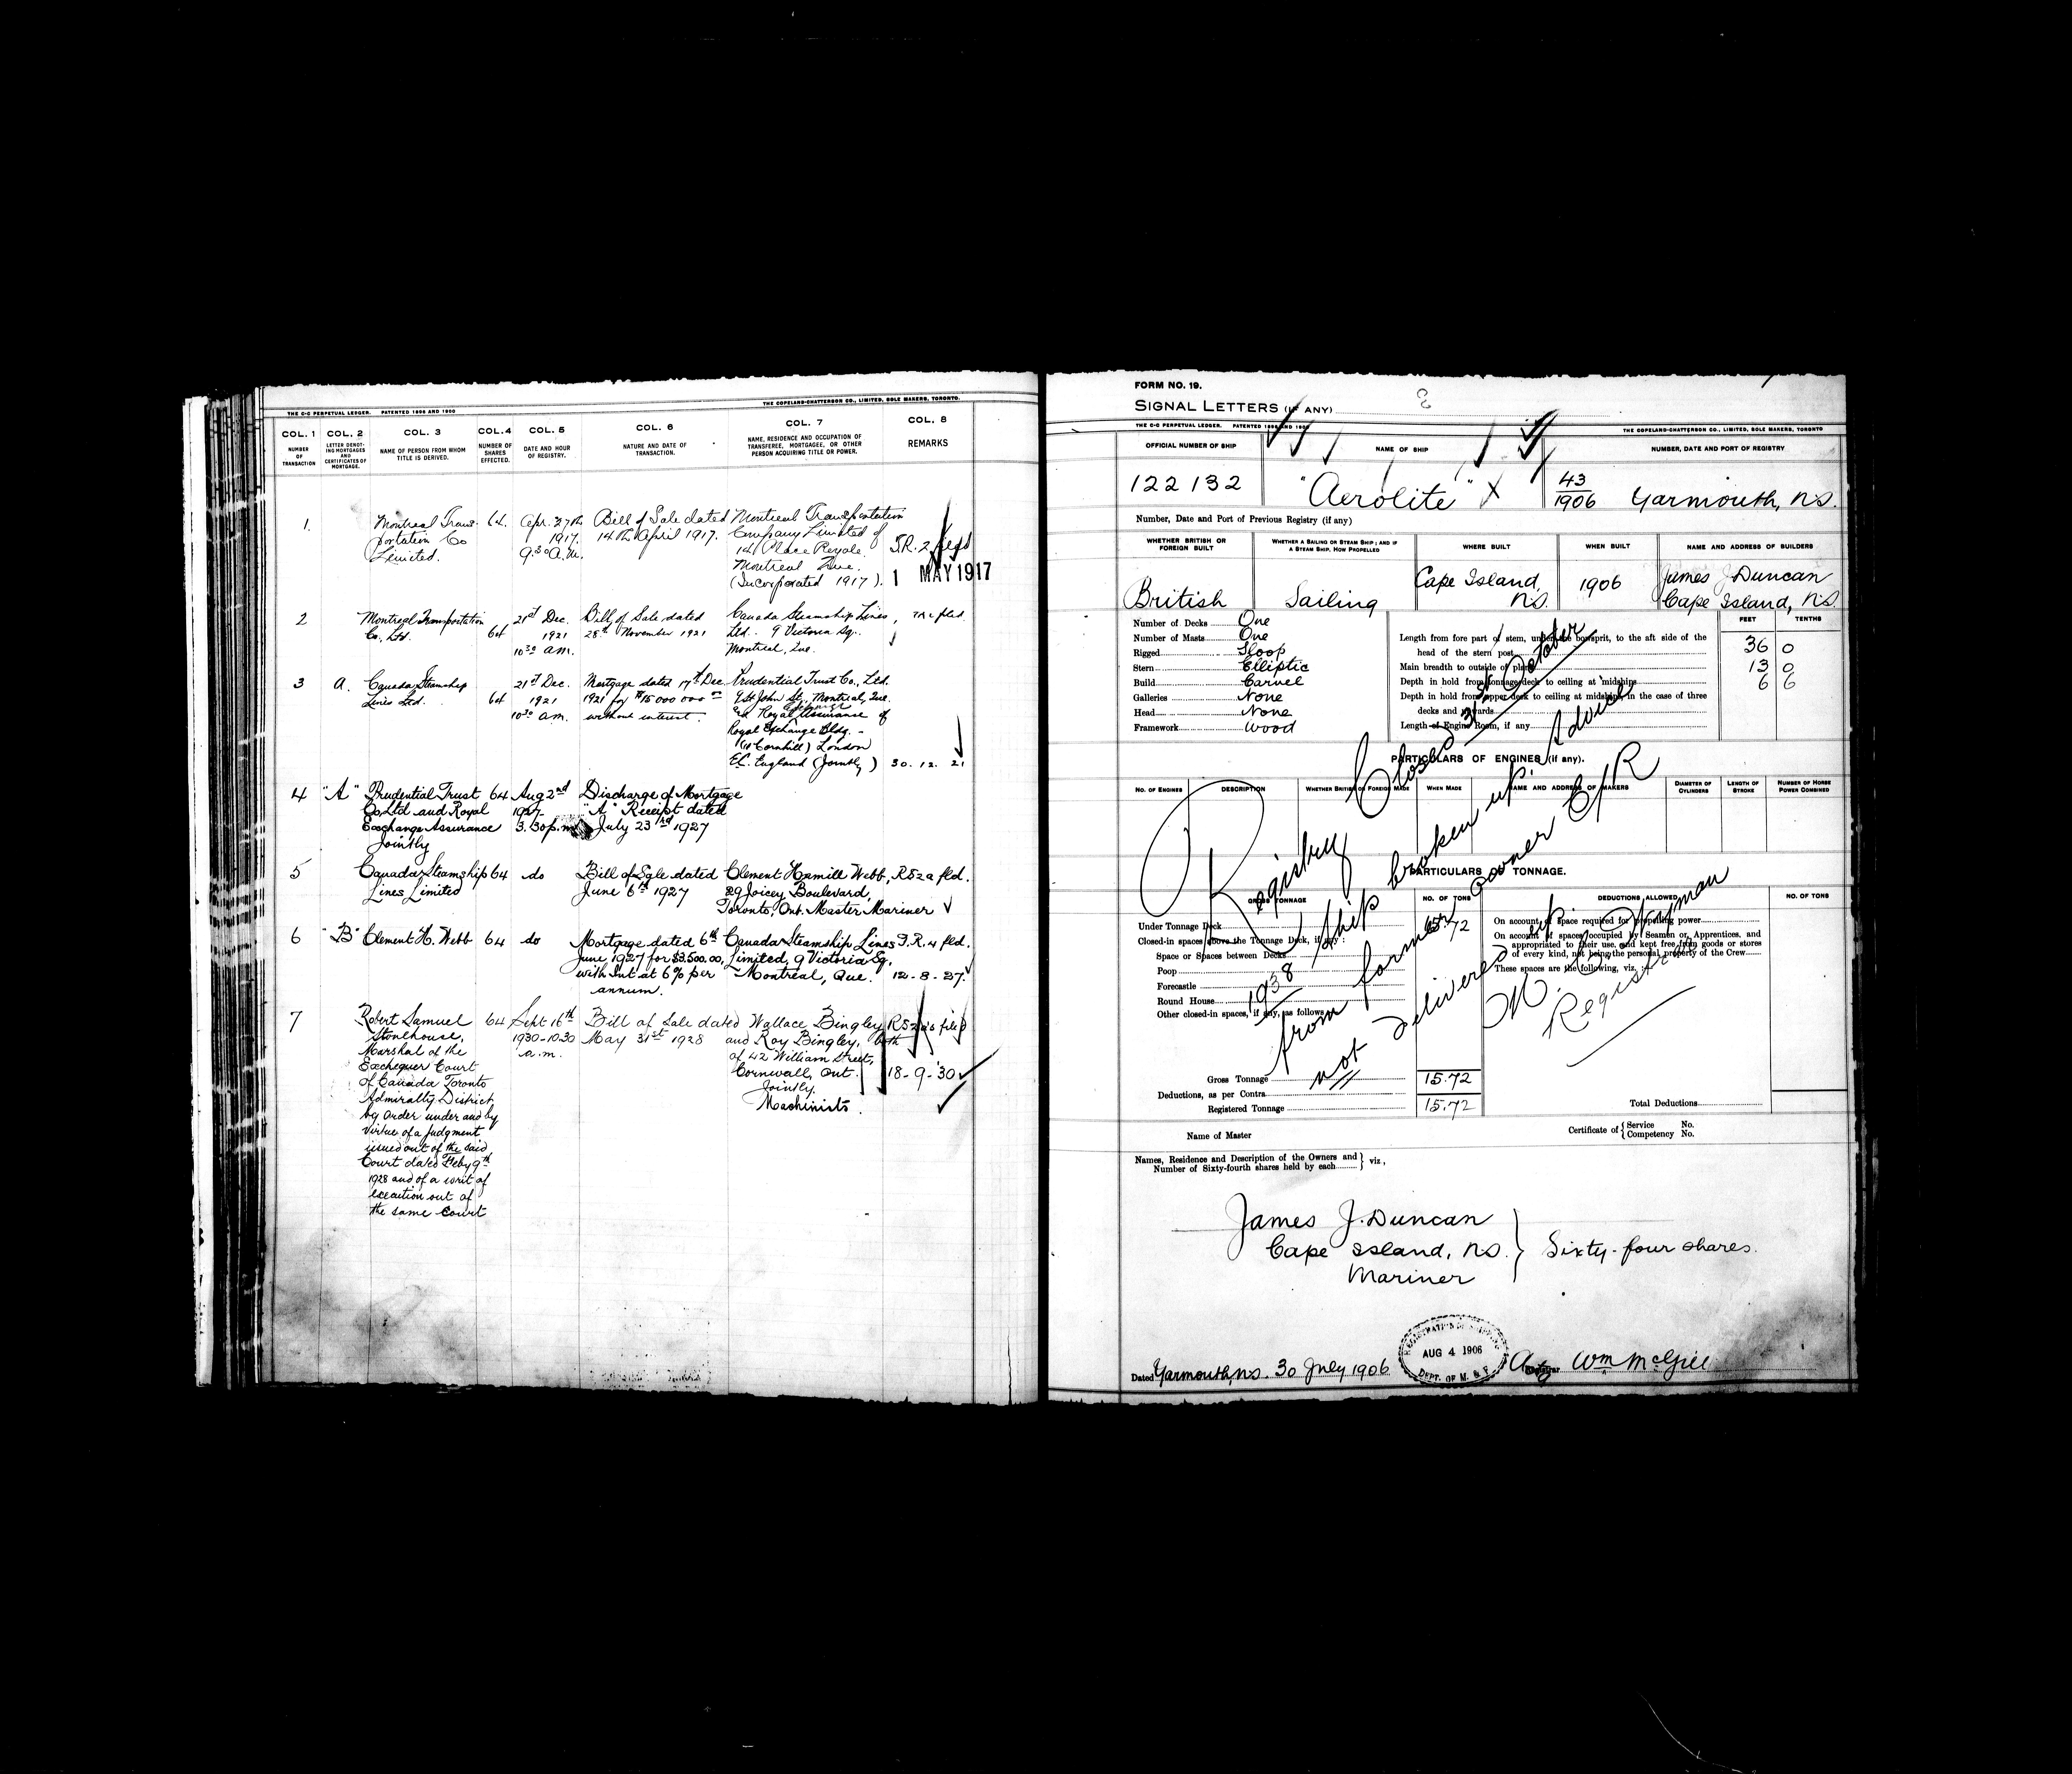 THE C-C PERPETUAL LEDGER. PATENTED 1896 AND 1900
THE COPELAND-CHATTERSON CO., LIMITED, SOLE MAKERS, TORONTO.
COL. 1
NUMBER OF TRANSACTION
COL. 2
LETTER DENOTING MORTGAGES AND CERTIFICATES OF MORTGAGE.
COL. 3
NAME OF PERSON FROM WHOM TITLE IS DERIVED.
COL. 4
NUMBER OF SHARES EFFECTED.
COL. 5
DATE AND HOUR OF REGISTRY.
COL. 6
NATURE AND DATE OF TRANSACTION.
COL. 7
NAME, RESIDENCE AND OCCUPATION OF TRANSFEREE, MORTGAGEE, OR OTHER PERSON ACQUIRING TITLE OR POWER.
COL. 8
REMARKS
1. Montreal Trans- 64. Apr. 27th Bill of Sale dated Montreal Transportation
portation Co 1917. 14th April 1917. Company Limited of
Limited. 9.30 a.m. 14 Place Royale. S.R. 2
Montreal Que.
(Incorporated 1917). 1 MAY 1917
2 Montreal Transportation 21st Dec. Bill of Sale dated Canada Steamship Lines,
Co. Ltd. 64 1921 28th November 1921 Ltd. 9 Victoria Sq.
10.30 am. Montreal, Que.
3 A. Canada Steamship 21st Dec. Mortgage dated 17th Dec. Prudential Trust Co., Ltd.
Lines Ltd. 64 1921 1921 for $15 000 000 00 9 St John St., Montreal, Que.
10.30 am. without interest. and Royal Exchange Assurance of
Royal Exchange Bldg. -
Cornhill) London
E.C. England (Jointly) 30. 12. 21
4 "A" Prudential Trust 64 Aug 2nd Discharge of Mortgage
Co. Ltd and Royal 1927- "A" Receipt dated
Exchange Assurance 3.30 p.m. July 23rd 1927
Jointly
5 Canada Steamship 64 do Bill of Sale dated Clement Hamill Webb, R52a fld.
Lines Limited June 6th 1927 29 Joicey Boulevard,
Toronto, Ont. Master Mariner
6 "B" Clement H. Webb 64 do Mortgage dated 6th Canada Steamship Lines S.R. 4 fld.
June 1927 for $3,500.00, Limited, 9 Victoria Sq.
with int at 6% per Montreal, Que. 12-8-27.
annum.
7 Robert Samuel 64 Sept 16th Bill of Sale dated Wallace Bingley
Stonehouse, 1930-10.30 May 31st 1928 and Roy Bingley, both
Marshal of the a.m. of 42 William Street,
Exchequer Court Cornwall, Ont. 18-9-30
of Canada Toronto Jointly.
Admiralty District Machinists.
by order under and by
virtue of a judgment
issued out of the said
Court dated Feby 9th
1928 and of a writ of
execution out of
the same Court
FORM NO. 19.
SIGNAL LETTERS (IF ANY)
THE C-C PERPETUAL LEDGER. PATENTED 1896 AND 1900
THE COPELAND-CHATTERSON CO., LIMITED, SOLE MAKERS, TORONTO
OFFICIAL NUMBER OF SHIP NAME OF SHIP NUMBER, DATE AND PORT OF REGISTRY
122132 "Aerolite" X 43/1906 Yarmouth, N.S.
Number, Date and Port of Previous Registry (if any)
WHETHER BRITISH OR FOREIGN BUILT
WHETHER A SAILING OR STEAM SHIP; AND IF A STEAM SHIP, HOW PROPELLED
WHERE BUILT
WHEN BUILT
NAME AND ADDRESS OF BUILDERS
British Sailing Cape Island, N.S. 1906 James J Duncan
Cape Island, N.S.
FEET TENTHS
Number of Decks One
Number of Masts One
Rigged Sloop
Stern Elliptic
Build Carvel
Galleries None
Head None
Framework Wood
Length from fore part of stem, under the bowsprit, to the aft side of the
head of the stern post 36 0
Main breadth to outside of plank 13 0
Depth in hold from tonnage deck to ceiling at midships 6 6
Depth in hold from upper deck to ceiling at midships, in the case of three
decks and upwards
Length of Engine Room, if any
PARTICULARS OF ENGINES (if any).
NO. OF ENGINES DESCRIPTION WHETHER BRITISH OR FOREIGN MADE WHEN MADE NAME AND ADDRESS OF MAKERS DIAMETER OF CYLINDERS LENGTH OF STROKE NUMBER OF HORSE POWER COMBINED
Registry Closed 31st October
1938 Ship broken up. Advice
from former owner C/R
not delivered up
Registrar
PARTICULARS OF TONNAGE.
GROSS TONNAGE NO. OF TONS DEDUCTIONS ALLOWED NO. OF TONS
Under Tonnage Deck 15.72
Closed-in spaces above the Tonnage Deck, if any:
Space or Spaces between Decks
Poop
Forecastle
Round House
Other closed-in spaces, if any, as follows
On account of space required for propelling power
On account of spaces occupied by Seamen or Apprentices, and
appropriated to their use, and kept free from goods or stores
of every kind, not being the personal property of the Crew
These spaces are the following, viz.:
Gross Tonnage 15.72
Deductions, as per Contra
Registered Tonnage 15.72
Total Deductions
Name of Master
Certificate of { Service No.
Competency No.
Names, Residence and Description of the Owners and
Number of Sixty-fourth shares held by each } viz,
James J. Duncan
Cape Island, N.S. } Sixty-four shares.
Mariner
Dated Yarmouth, N.S. 30 July 1906
REGISTRATION OF SHIPPING
AUG 4 1906
DEPT. OF M. & F.
Actg Registrar Wm McGill